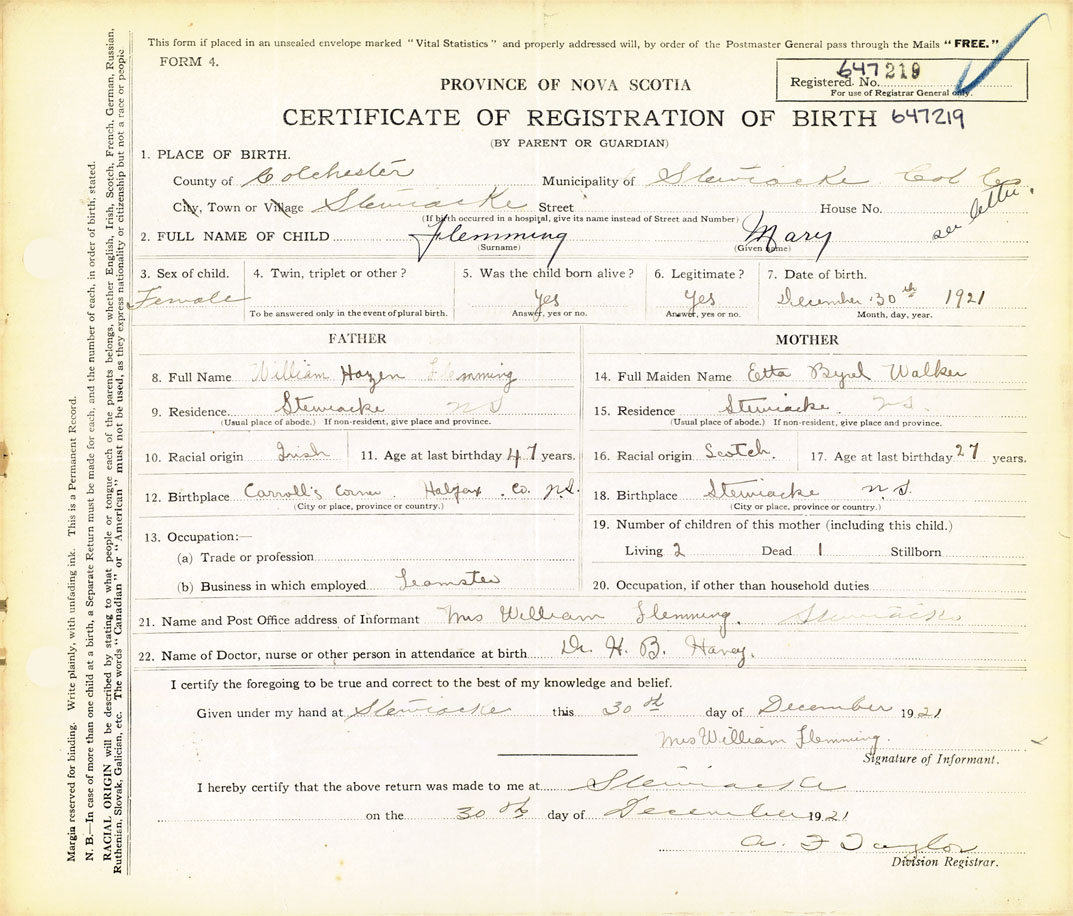 This form if placed in an unsealed envelope marked "Vital Statistics" and properly addressed will, by order of the Postmaster General pass through the Mails "FREE."
FORM 4.
647219
Registered No.
For use of Registrar General only.
PROVINCE OF NOVA SCOTIA
CERTIFICATE OF REGISTRATION OF BIRTH 647219
(BY PARENT OR GUARDIAN)
1. PLACE OF BIRTH.
County of Colchester Municipality of Stewiacke Col Co.
City, Town or Village Stewiacke Street House No.
(If birth occurred in a hospital, give its name instead of Street and Number)
see letter
2. FULL NAME OF CHILD Flemming Mary
(Surname) (Given name)
3. Sex of child. 4. Twin, triplet or other? 5. Was the child born alive? 6. Legitimate? 7. Date of birth.
Female Yes Yes December 30th 1921
To be answered only in the event of plural birth. Answer, yes or no. Answer, yes or no. Month, day, year.
FATHER
8. Full Name William Hazen Flemming
9. Residence Stewiacke N S
(Usual place of abode.) If non-resident, give place and province.
10. Racial origin Irish 11. Age at last birthday 47 years.
12. Birthplace Carroll's Corner. Halifax. Co. N.S.
(City or place, province or country.)
13. Occupation:—
(a) Trade or profession
(b) Business in which employed Teamster
MOTHER
14. Full Maiden Name Etta Byrel Walker
15. Residence Stewiacke. N S.
(Usual place of abode.) If non-resident, give place and province.
16. Racial origin Scotch. 17. Age at last birthday 27 years.
18. Birthplace Stewiacke N. S.
(City or place, province or country.)
19. Number of children of this mother (including this child.)
Living 2 Dead 1 Stillborn
20. Occupation, if other than household duties
21. Name and Post Office address of Informant Mrs William Flemming. Stewiacke
22. Name of Doctor, nurse or other person in attendance at birth Dr. H. B. Havey.
I certify the foregoing to be true and correct to the best of my knowledge and belief.
Given under my hand at Stewiacke this 30th day of December 1921
Mrs William Flemming.
Signature of Informant.
I hereby certify that the above return was made to me at Stewiacke
on the 30th day of December 1921
A. F Taylor
Division Registrar.
Margin reserved for binding. Write plainly, with unfading ink. This is a Permanent Record.
N. B.—In case of more than one child at a birth, a Separate Return must be made for each, and the number of each, in order of birth, stated.
RACIAL ORIGIN will be described by stating to what people or tongue each of the parents belongs, whether English, Irish, Scotch, French, German, Russian,
Ruthenian, Slovak, Galician, etc. The words "Canadian" or "American" must not be used, as they express nationality or citizenship but not a race or people